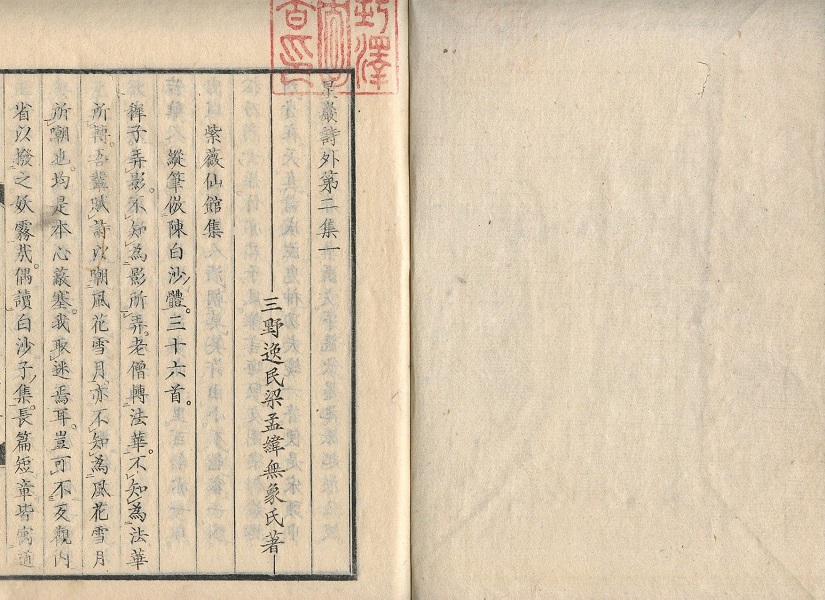 星巖詩外第二集一
三野逸民梁孟緯無象氏著
紫薇仙館集
縱筆倣陳白沙體。三十六首。
稚子弄影。不知為影所弄。老僧轉法華。不知為法華
所轉。吾輩賦詩以嘲風花雪月。亦不知為風花雪月
所嘲也。均是本心蒙塞。我取迷焉耳。豈可不反觀内
省以撥之妖霧哉。偶讀白沙子集。長篇短章皆寓道